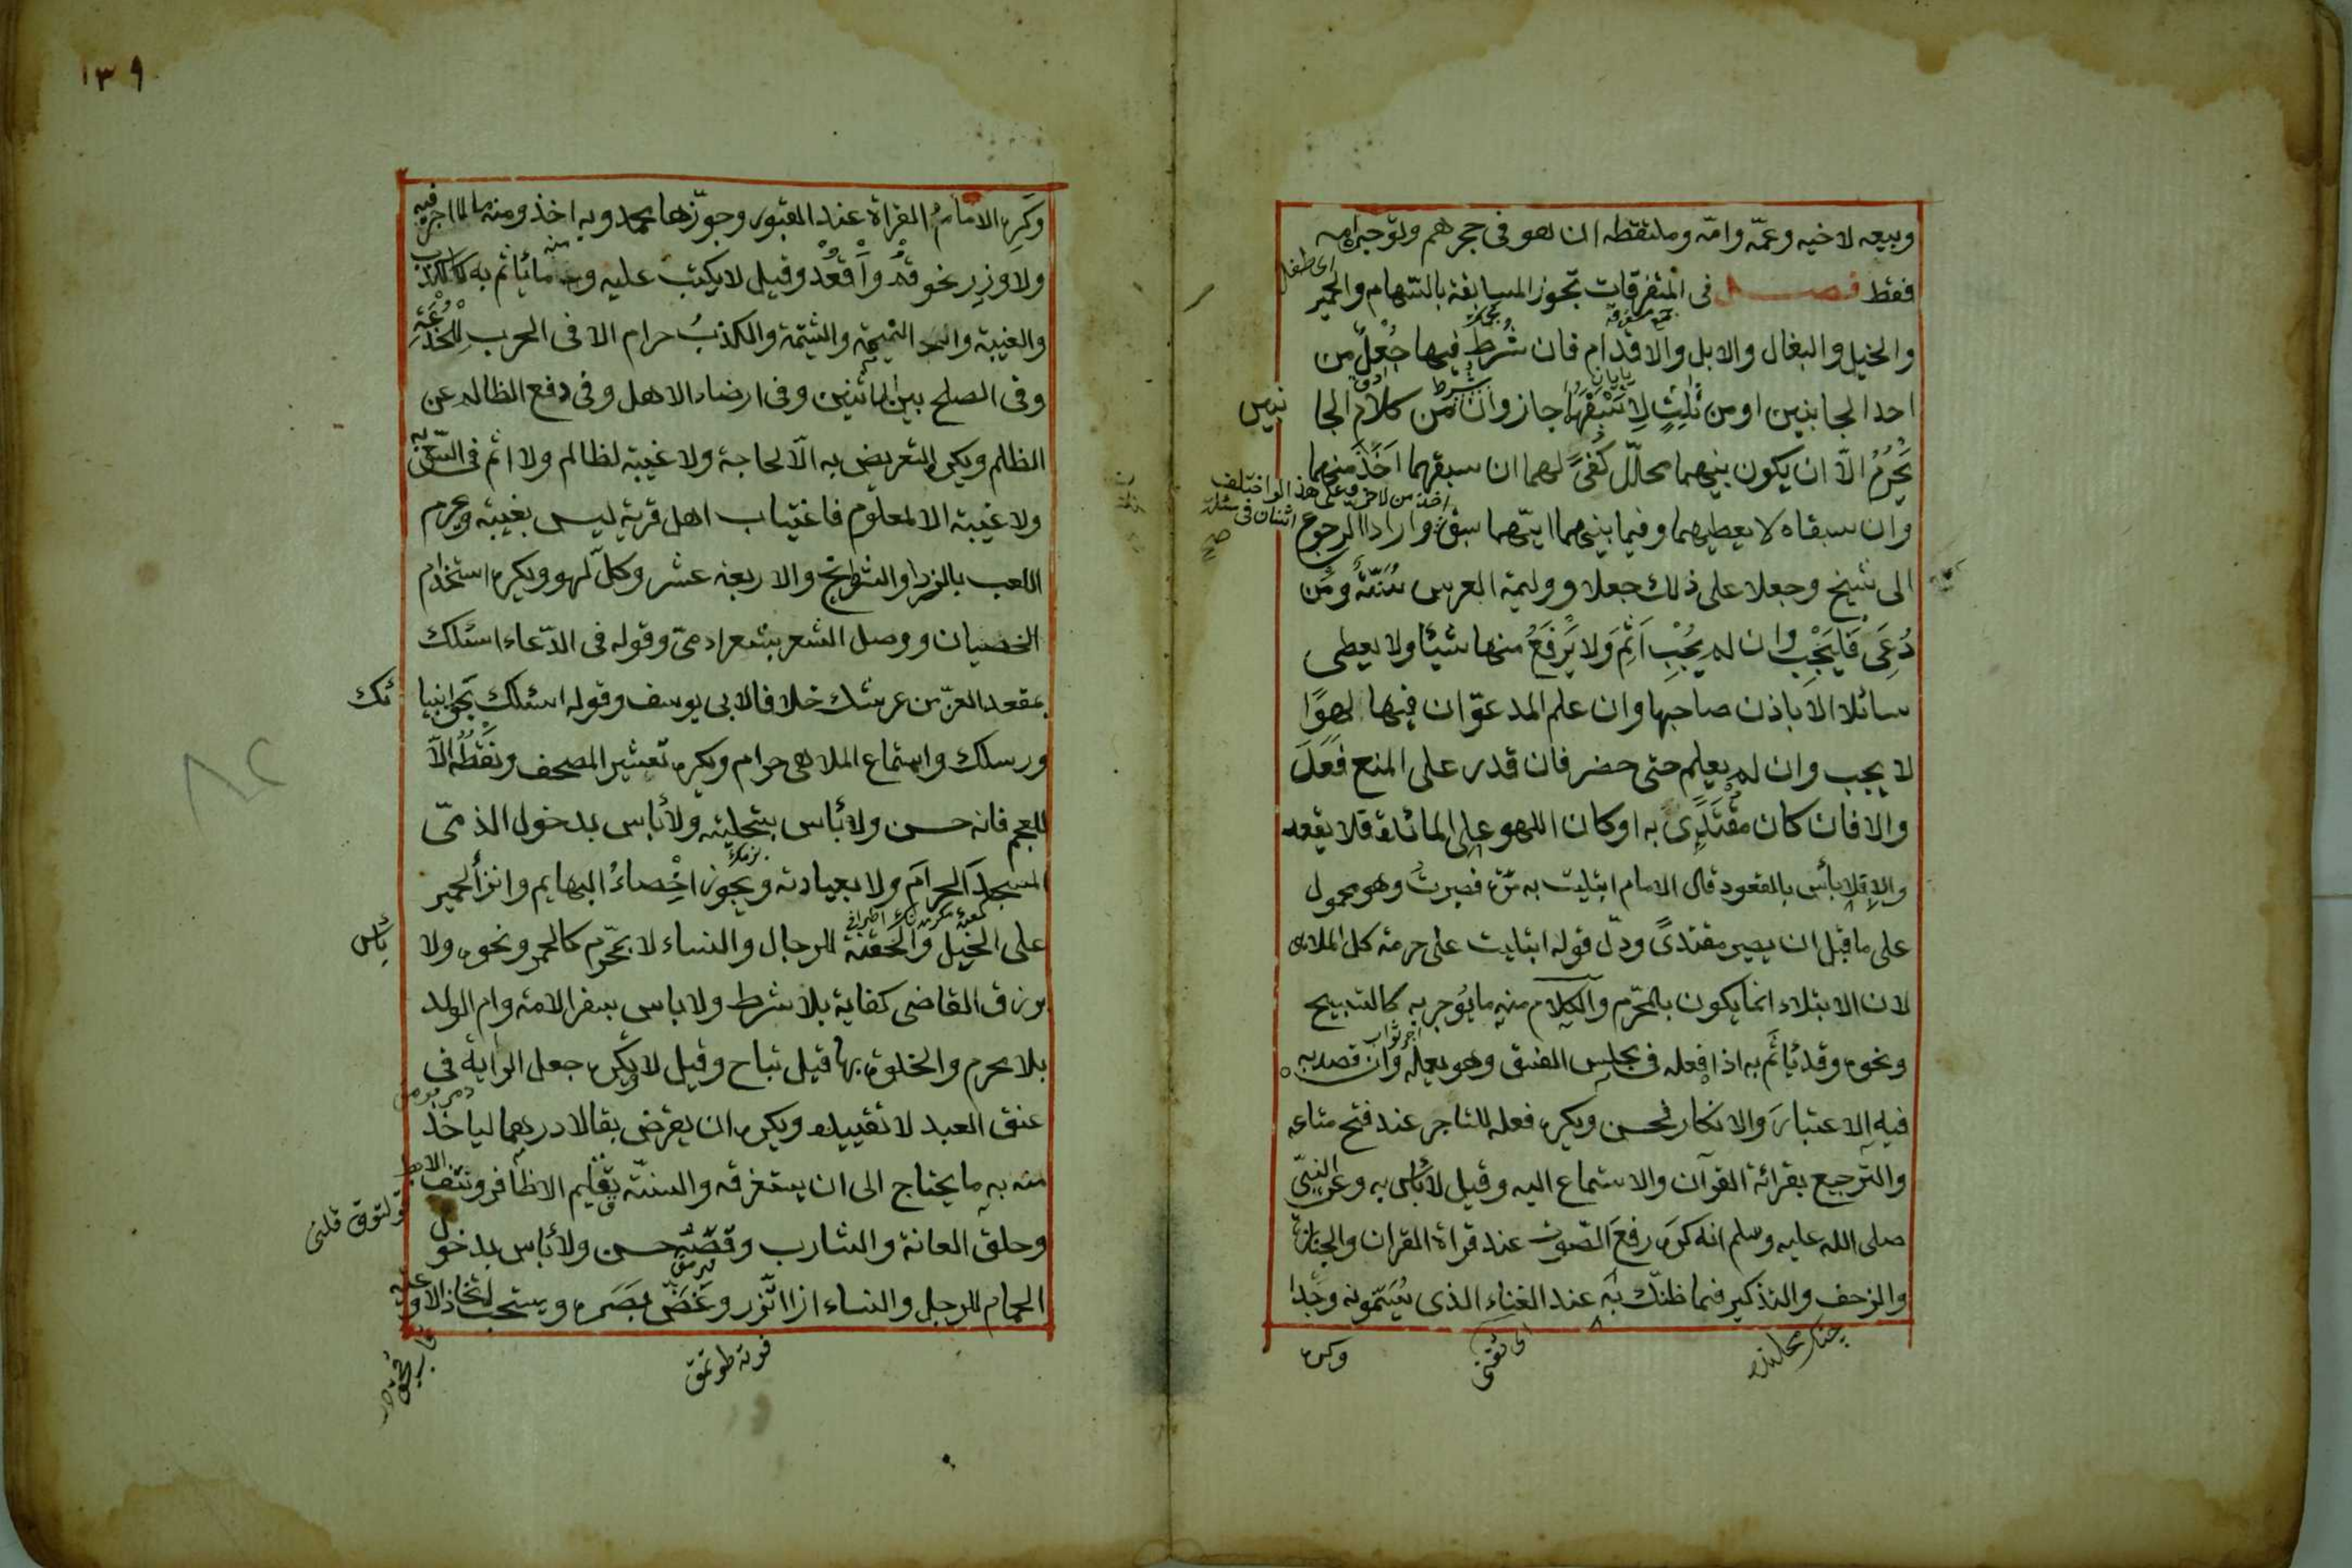 وبيعه لاخيه وعمّه وامّه وملتقطه ان هو فى حجرهم وتؤجره امه
فقط فصل فى المتفرقات تجوز المسابقة بالسّهام والحمير
والخيل والبغال والابل والاقدام فان شُرط فيها جُعْلٌ من
احد الجانبين او من ثالث لاسبقهما جاز وان من كلا الجا
نبين
يَحْرُمُ الّا ان يكون بينهما محلّل كُفئٌ لهما ان سبقهما اَخَذَ منهما
وان سبقاه لا يعطيهما وفيما بينهما ايّهما سبق اخذ من الاخر وعلى هذا لو اختلف اثنان فى مسئلة وارادا الرجوع
الى شيخ وجعلا على ذلك جعلا ووليمة العرس سُنّة ومَن
دُعِىَ فَليَجِب وان لم يُجِبْ اَثِمَ ولا يَرْفَعُ منها شيئا ولا يعطى
سائلا الا باذن صاحبها وان علم المدعوّ ان فيها لهوًا
لا يجب وان لم يعلم حتى حضر فان قدر على المنع فَعَلَ
والا فان كان مقتدًى به او كان اللهو على المائدة فلا يقعد
والا فلا بأس بالقعود قال الامام ابتليت به مرّة فصبرت وهو محمول
على ما قبل ان يصير مقتدىً ودلّ قوله ابتليت على حرمة كل الملاهى
لان الابتلاء انما يكون بالمحرّم والكلام منه ما يؤجر به كالتسبيح
ونحوه وقد يأثم به اذا فعله فى مجلس الفسق وهو يعلمه وان قصد به
فيه الاعتبارَ والانكار فحسن ويكره فعله للتاجر عند فتح متاعه
والترجيع بقرائة القرآن والاستماع اليه وقيل لا بأس به وعن النبىّ
صلى الله عليه وسلم انه كره رفعَ الصّوت عند قراة القران والجنازة
والزحف والتذكير فما ظنّك به عند الغناء الذى يُسَمّونه وجدا
وكره
١٣٩
وكَرِه الامامُ القراة عند القبور وجوّزها محمد وبه اخذ ومنه ما لا اجر فيه
ولا وزر نحو قُمْ واَقْعُدْ وقيل لا يكتب عليه ومنه ما يأثم به كالكذب
والغيبة والنميمة والشتمة والكذبُ حرام الا فى الحرب للخُدْعَة
وفى الصلح بين اثنين وفى ارضاء الاهل وفى دفع الظالم عن
الظلم ويكره التعريض به الّا لحاجة ولا غيبة لظالم ولا اثم فى السّعى به
ولا غيبة الا لمعلوم فاغتياب اهل قرية ليس بغيبة ويحرم
اللعب بالنرد والشطرنج والاربعة عشر وكلّ لهو ويكره استخدام
الخصيان ووصل الشعر بشعر ادمىّ وقوله فى الدّعاء اسئلك
بمقعد العزّ من عرشك خلافا لابى يوسف وقوله اسئلك بحق انبيا
ئك
ورسلك واستماع الملاهى حرام ويكره تعشير المصحف ونَقْطُه الّا
للعجم فانه حسن ولا بأس بتحليته ولا بأس بدخول الذمّى
المسجدَ الحرامَ ولا بعيادته ويجوز اخصاءُ البهايم وانزأ الحمير
على الخيل والحقنة للرجال والنساء لا بمحرّم كالخمر ونحوه ولا
بأس
برزق القاضى كفاية بلا شرط ولا باس بسفر الامة وام الولد
بلا محرم والخلوة بها قيل تباح وقيل لا ويكره جعل الراية فى
عنق العبد لا تقييده ويكره ان يقرض بقالا درهما لياخذ
منه به ما يحتاج الى ان يستغرقه والسنّة تقليم الاظافر ونتف الابط
وحلق العانة والشارب وقصّه حسن ولا بأس بدخول
الحمام للرجل والنساء اذا اتّزر وغضّ بصره ويستحب اتخاذ الاوعية